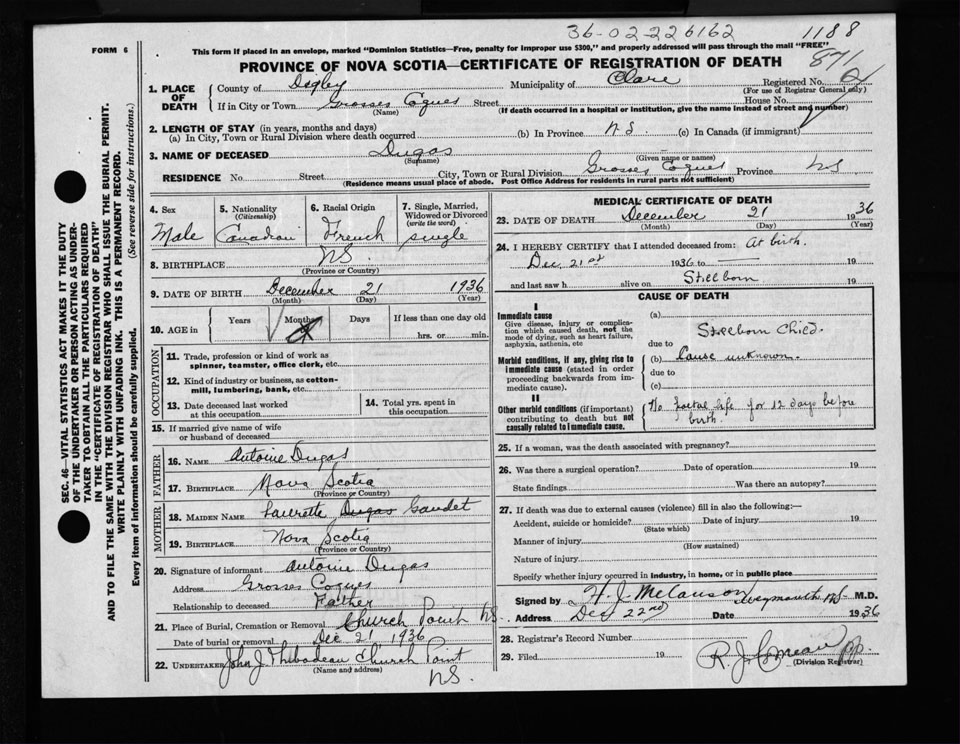 36-02-226162 1188
FORM 6
This form if placed in an envelope, marked "Dominion Statistics—Free, penalty for improper use $300," and properly addressed will pass through the mail "FREE"
871
PROVINCE OF NOVA SCOTIA—CERTIFICATE OF REGISTRATION OF DEATH
1. PLACE OF DEATH
County of Digby Municipality of Clare Registered No.
(For use of Registrar General only)
If in City or Town Grosses Coques Street House No.
(Name) (If death occurred in a hospital or institution, give the name instead of street and number)
2. LENGTH OF STAY (in years, months and days)
(a) In City, Town or Rural Division where death occurred (b) In Province N.S. (c) In Canada (if immigrant)
3. NAME OF DECEASED Dugas
(Surname) (Given name or names)
RESIDENCE No. Street City, Town or Rural Division Grosses Coques Province NS
(Residence means usual place of abode. Post Office Address for residents in rural parts not sufficient)
4. Sex Male
5. Nationality (Citizenship) Canadian
6. Racial Origin French
7. Single, Married, Widowed or Divorced (write the word) single
8. BIRTHPLACE NS.
(Province or Country)
9. DATE OF BIRTH December 21 1936
(Month) (Day) (Year)
10. AGE in Years Months Days If less than one day old
hrs. or min.
OCCUPATION
11. Trade, profession or kind of work as spinner, teamster, office clerk, etc.
12. Kind of industry or business, as cotton-mill, lumbering, bank, etc.
13. Date deceased last worked at this occupation
14. Total yrs. spent in this occupation
15. If married give name of wife or husband of deceased
FATHER
16. NAME Antoine Dugas
17. BIRTHPLACE Nova Scotia
(Province or Country)
MOTHER
18. MAIDEN NAME Laurette Dugas Gaudet
19. BIRTHPLACE Nova Scotia
(Province or Country)
20. Signature of informant Antoine Dugas
Address Grosses Coques
Relationship to deceased Father
21. Place of Burial, Cremation or Removal Church Point NS.
Date of burial or removal Dec 21 1936
22. UNDERTAKER John J Thibodeau Church Point
(Name and address)
NS.
MEDICAL CERTIFICATE OF DEATH
23. DATE OF DEATH December 21 1936
(Month) (Day) (Year)
24. I HEREBY CERTIFY that I attended deceased from: At birth.
Dec 21st 1936 to 19
and last saw h alive on Stillborn 19
CAUSE OF DEATH
I
Immediate cause
Give disease, injury or complication which caused death, not the mode of dying, such as heart failure, asphyxia, asthenia, etc
(a) Stillborn Child.
due to
Morbid conditions, if any, giving rise to immediate cause (stated in order proceeding backwards from immediate cause).
(b) Cause unknown.
due to
(c)
II
Other morbid conditions (if important) contributing to death but not causally related to immediate cause.
No foetal life for 12 days before birth.
25. If a woman, was the death associated with pregnancy?
26. Was there a surgical operation? Date of operation 19
State findings Was there an autopsy?
27. If death was due to external causes (violence) fill in also the following:—
Accident, suicide or homicide? Date of injury 19
(State which)
Manner of injury
(How sustained)
Nature of injury
Specify whether injury occurred in industry, in home, or in public place
Signed by Weymouth NS M.D.
Address Dec 22nd Date 1936
28. Registrar's Record Number
29. Filed 19 R. J. Comeau
(Division Registrar)
SEC. 46—VITAL STATISTICS ACT MAKES IT THE DUTY
OF THE UNDERTAKER OR PERSON ACTING AS UNDER-
TAKER TO OBTAIN ALL THE PARTICULARS REQUIRED
IN THE "CERTIFICATE OF REGISTRATION OF DEATH"
AND TO FILE THE SAME WITH THE DIVISION REGISTRAR WHO SHALL ISSUE THE BURIAL PERMIT.
WRITE PLAINLY WITH UNFADING INK. THIS IS A PERMANENT RECORD.
Every item of information should be carefully supplied. (See reverse side for instructions.)